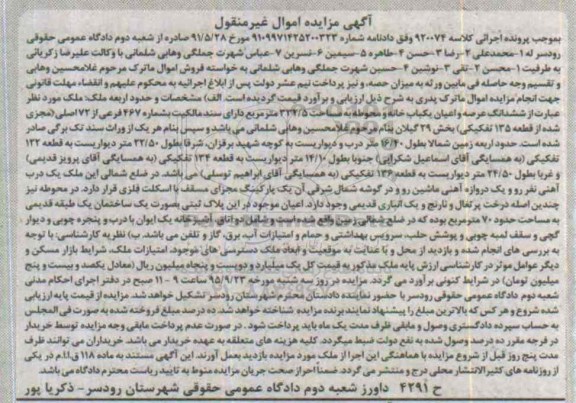 آگهی مزایده اموال غیرمنقول
بموجب پرونده اجرائی کلاسه ۹۲۰۰۷۴ وفق دادنامه شماره ۹۱۰۹۹۷۱۴۲۵۲۰۰۳۲۳ مورخ ۹۱/۵/۲۸ صادره از شعبه دوم دادگاه عمومی حقوقی
رودسر له ۱-محمدعلی ۲-رضا ۳-حسن ۴-طاهره ۵-سیمین ۶-نسرین ۷-عباس شهرت جملگی وهابی شلمانی با وکالت علیرضا زکریائی
به طرفیت ۱-محسن ۲-تقی ۳-نوشین ۴-حسین شهرت جملگی وهابی شلمانی به خواسته فروش اموال ماترک مرحوم غلامحسین وهابی
و تقسیم وجه حاصله فی مابین ورثه به میزان حصه، و نیز پرداخت نیم عشر دولت پس از ابلاغ اجرائیه به محکوم علیهم و انقضاء مهلت قانونی
جهت انجام مزایده اموال ماترک پدری به شرح ذیل ارزیابی و برآورد قیمت گردیده است. الف) مشخصات و حدود اربعه ملک: ملک مورد نظر
عبارت از ششدانگ عرصه و اعیان یکباب خانه و محوطه به مساحت ۳۳۴/۵ مترمربع دارای سند مالکیت بشماره ۴۶۷ فرعی از ۷۲ اصلی (مجزی
شده از قطعه ۱۳۵ تفکیکی) بخش ۲۹ گیلان بنام مرحوم غلامحسین وهابی شلمانی می باشد و سپس بنام هر یک از وراث سند تک برگی صادر
شده است. حدود اربعه زمین شمالا بطول ۱۶/۴۰ متر درب و دیواریست به کوچه شهید برفزان، شرقا بطول ۲۲/۵۰ متر دیواریست به قطعه ۱۲۲
تفکیکی (به همسایگی آقای اسماعیل شکرایی) جنوبا بطول ۱۴/۱۰ متر دیواریست به قطعه ۱۲۴ تفکیکی (به همسایگی آقای پرویز قدیمی)
و غربا بطول ۲۴/۵۰ متر دیواریست به قطعه ۱۳۶ تفکیکی (به همسایگی آقای ابراهیم توسلی) می باشد. در ضلع شمالی این ملک یک درب
آهنی نفر رو و یک دروازه آهنی ماشین رو و در گوشه شمال شرقی آن یک پارکینگ مجزای مسقف با اسکلت فلزی قرار دارد. در محوطه نیز
چندین اصله درخت پرتغال و نارنج و یک انباری قدیمی وجود دارد. اعیان موجود در این پلاک ثبتی بصورت یک ساختمان یک طبقه قدیمی
به مساحت حدود ۷۰ مترمربع بوده که در ضلع شمالی زمین واقع شده است و شامل دو اتاق، آشپزخانه یک ایوان با درب و پنجره چوبی و دیوار
گچی و سقف لمبه چوبی و پوشش حلب، سرویس بهداشتی و حمام و امتیازات آب، برق، گاز و تلفن می باشد. ب) نظریه کارشناسی: با توجه
به بررسی های انجام شده و بازدید از محل و با عنایت به موقعیت و ابعاد ملک دسترسی های موجود، امتیازات ملک، شرایط بازار مسکن و
دیگر عوامل موثر در کارشناسی ارزش پایه ملک مذکور به قیمت کل یک میلیارد و دویست و پنجاه میلیون ریال (معادل یکصد و بیست و پنج
میلیون تومان) در شرایط کنونی برآورد می گردد. مزایده در روز سه شنبه مورخه ۹۵/۹/۲۳ ساعت ۹ - ۱۱ صبح در دفتر اجرای احکام مدنی
شعبه دوم دادگاه عمومی حقوقی رودسر با حضور نماینده دادستان محترم شهرستان رودسر تشکیل خواهد شد. مزایده از قیمت پایه ارزیابی
شده شروع و هر کس که بالاترین مبلغ را پیشنهاد نمایند برنده مزایده شناخته خواهد شد. ده درصد مبلغ فروخته شده به صورت فی المجلس
به حساب سپرده دادگستری وصول و مابقی ظرف مدت یک ماه باید پرداخت شود. در صورت عدم پرداخت مابقی وجه مزایده توسط خریدار
در فرجه مقرر ده درصد وصول شده به نفع دولت ضبط میگردد. کلیه هزینه های متعلقه به عهده خریدار می باشد. خریداران می توانند ظرف
مدت پنج روز قبل از شروع مزایده با هماهنگی این اجرا از ملک مورد مزایده بازدید بعمل آورند. این آگهی مستند به ماده ۱۱۸ ق.ا.م در یکی
از روزنامه های کثیرالانتشار محلی درج و منتشر می گردد. ضمناً احراز صحت جریان مزایده منوط به تایید ریاست محترم دادگاه می باشد.
ح ۴۲۹۱ دادورز شعبه دوم دادگاه عمومی حقوقی شهرستان رودسر- ذکریا پور